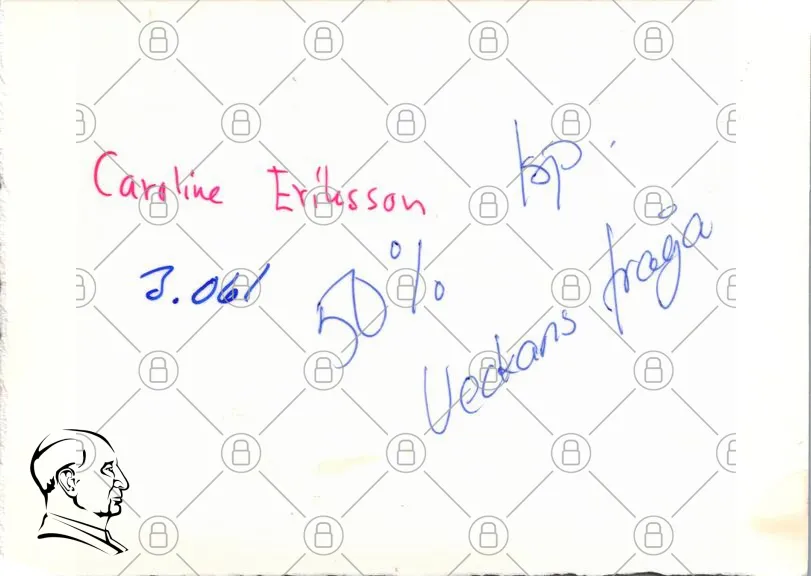 Caroline Eriksson
sp.
3.061
50%
Veckans fråga